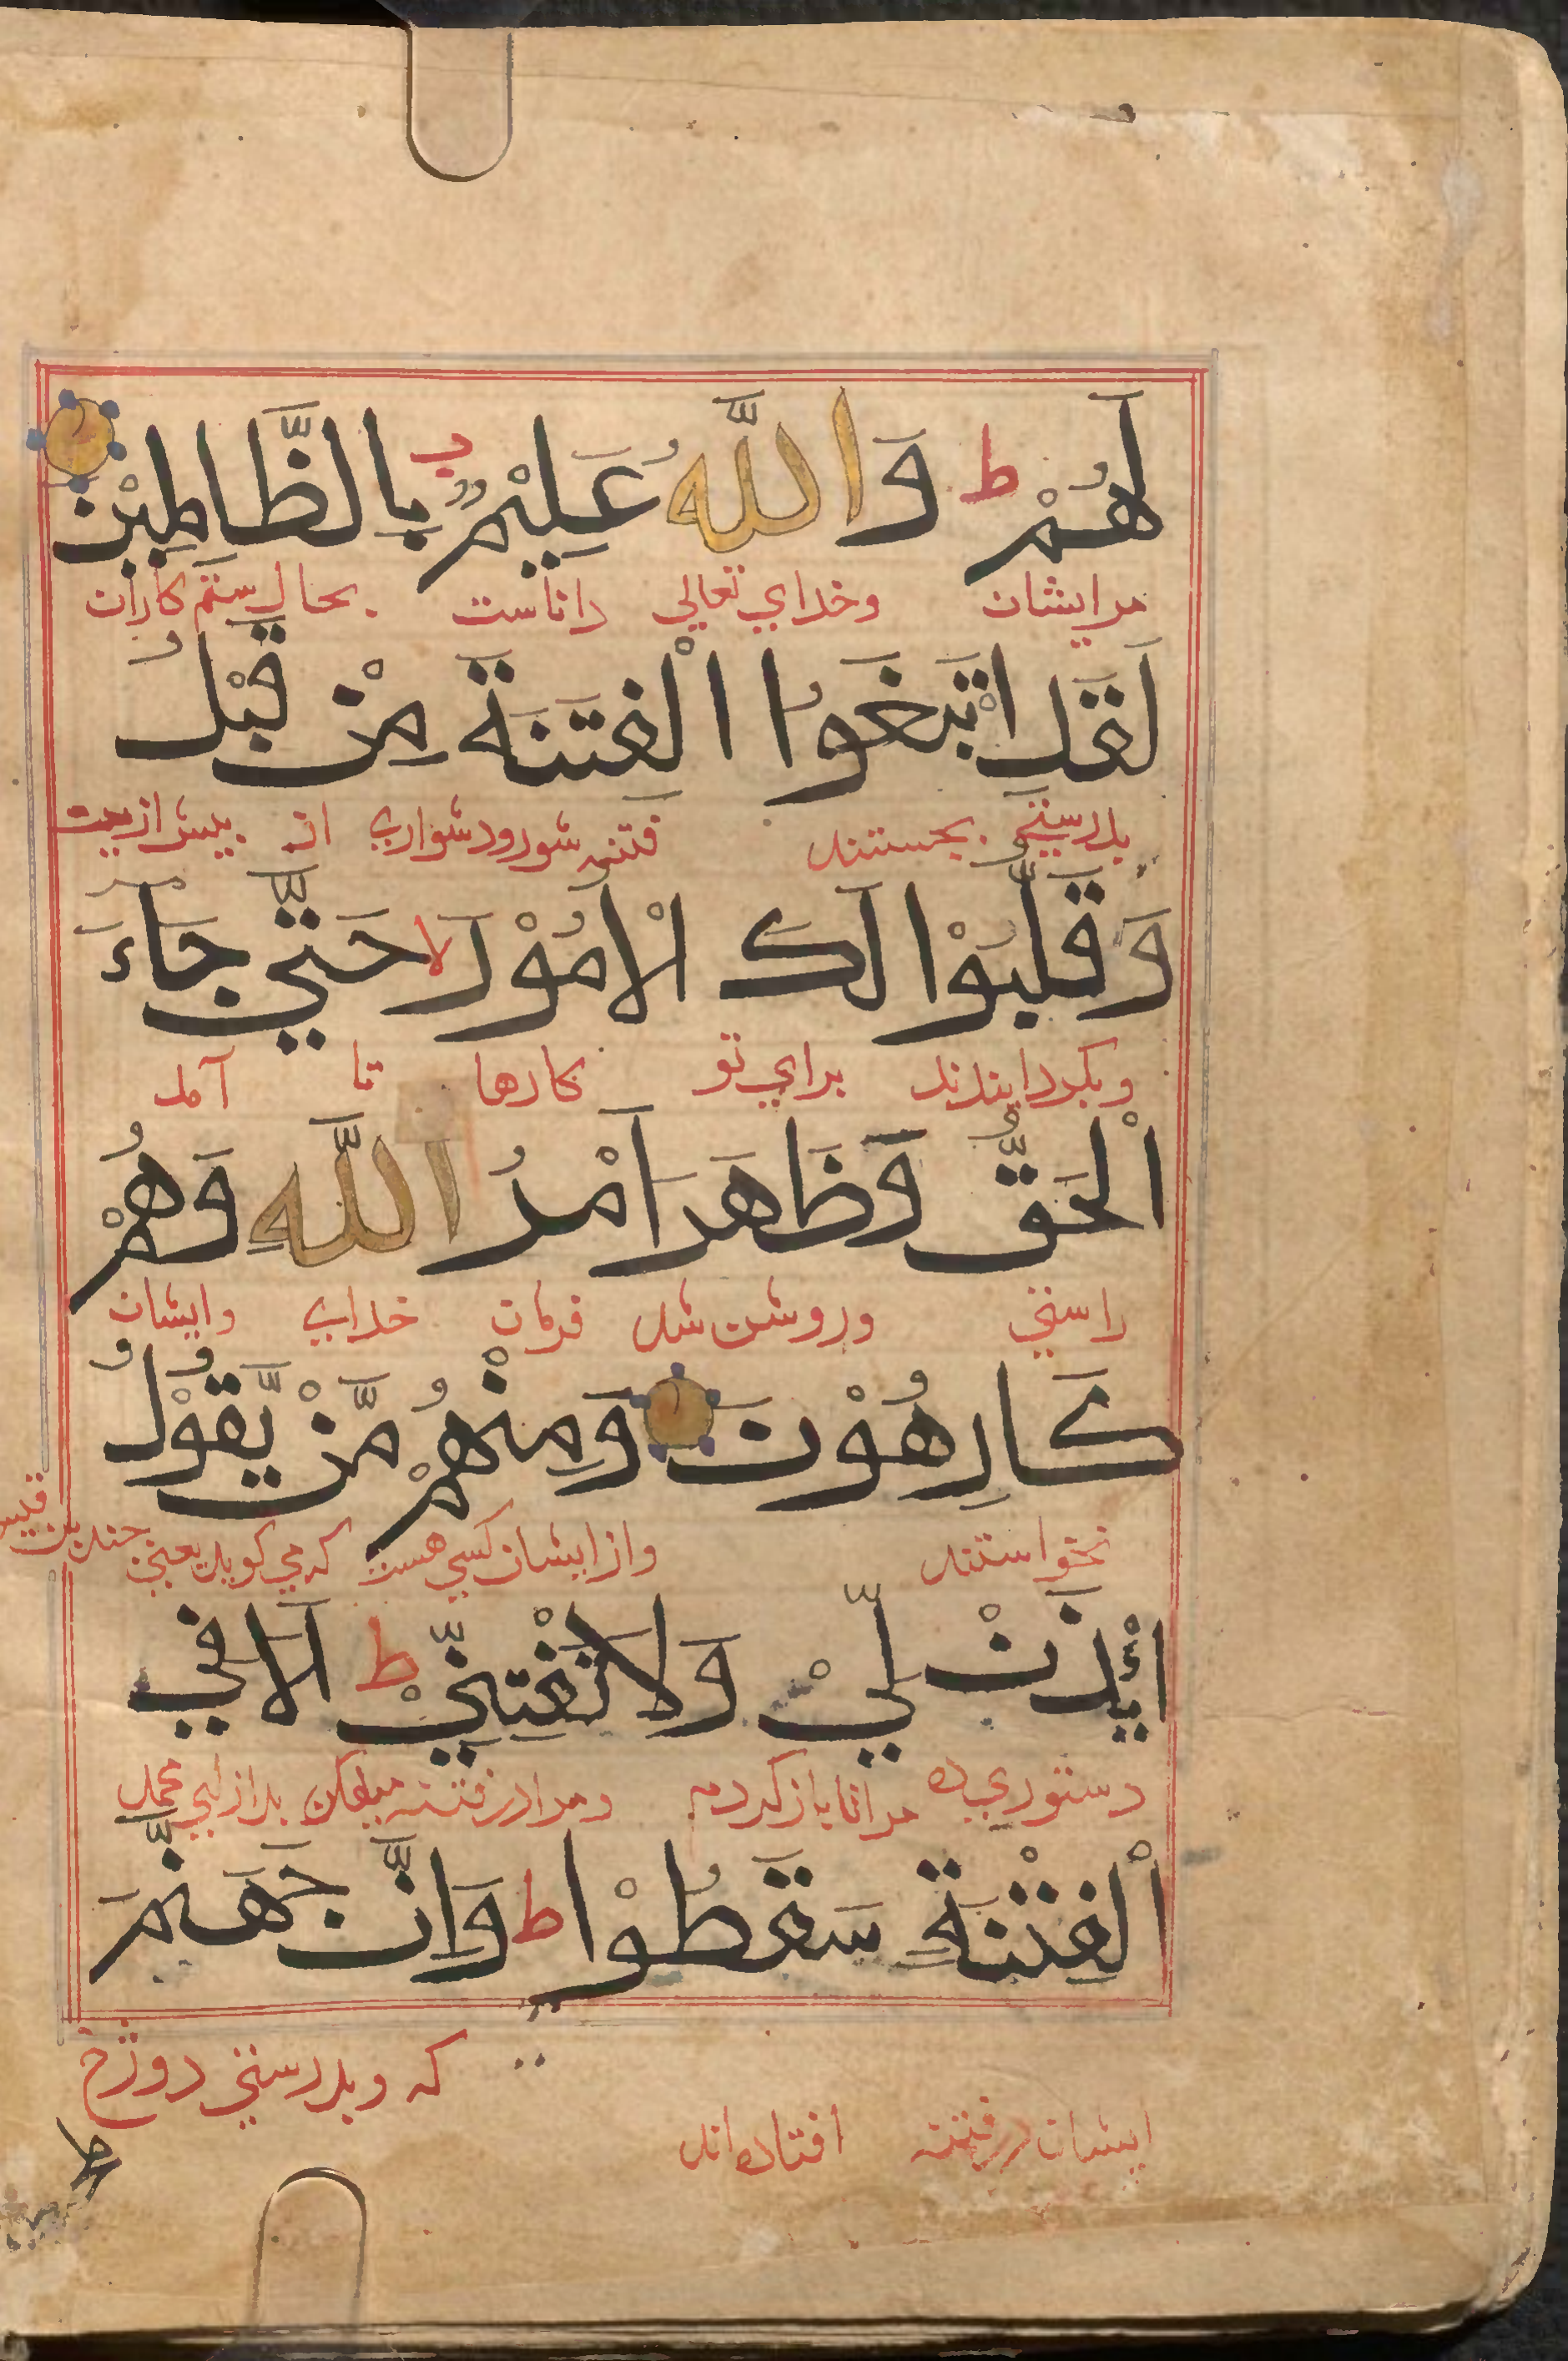 لَهُمْ ط وَاللّٰهُ عَلِيْمٌ بِالظَّالِمِيْنَ
مر ایشان وخدای تعالی داناست بحال ستم کاران
لَقَدِ ابْتَغَوُا الْفِتْنَةَ مِنْ قَبْلُ
بدرستی بجستند فتنه شور ودشواری از پیش ازین
وَقَلَّبُوْا لَكَ الْاُمُوْرَ لا حَتّٰي جَاءَ
وبگردانیدند برای تو کارها تا آمد
الْحَقُّ وَظَاهَرَ اَمْرُ اللّٰهِ وَهُمْ
راستی وروشن شد فرمان خدای وایشان
كَارِهُوْنَ وَمِنْهُمْ مَّنْ يَّقُوْلُ
نخواستند واز ایشان کسی هست که می کوید یعنی جند بن قیس
ائْذَنْ لِّيْ وَلَا تَفْتِنِّيْ ط اَلَا فِي
دستوری ده مرا تا باز کردم ومرا در فتنه میفکن
الْفِتْنَةِ سَقَطُوْا ط وَاِنَّ جَهَنَّمَ
که وبدرستی دوزخ
ایشان در فتنه افتاده اند